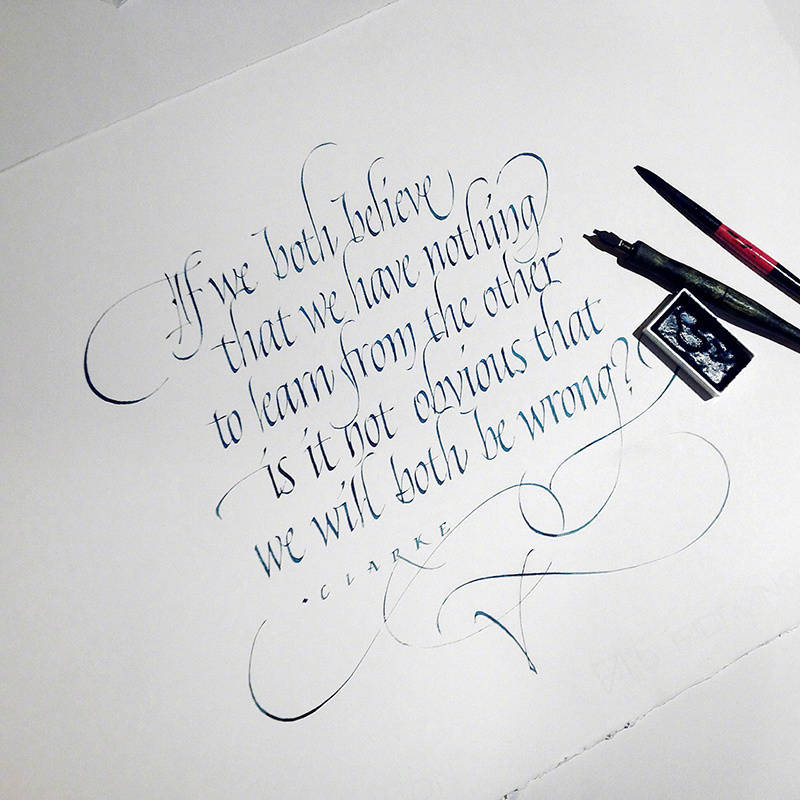 If we both believe
that we have nothing
to learn from the other
is it not obvious that
we will both be wrong?
·CLARKE